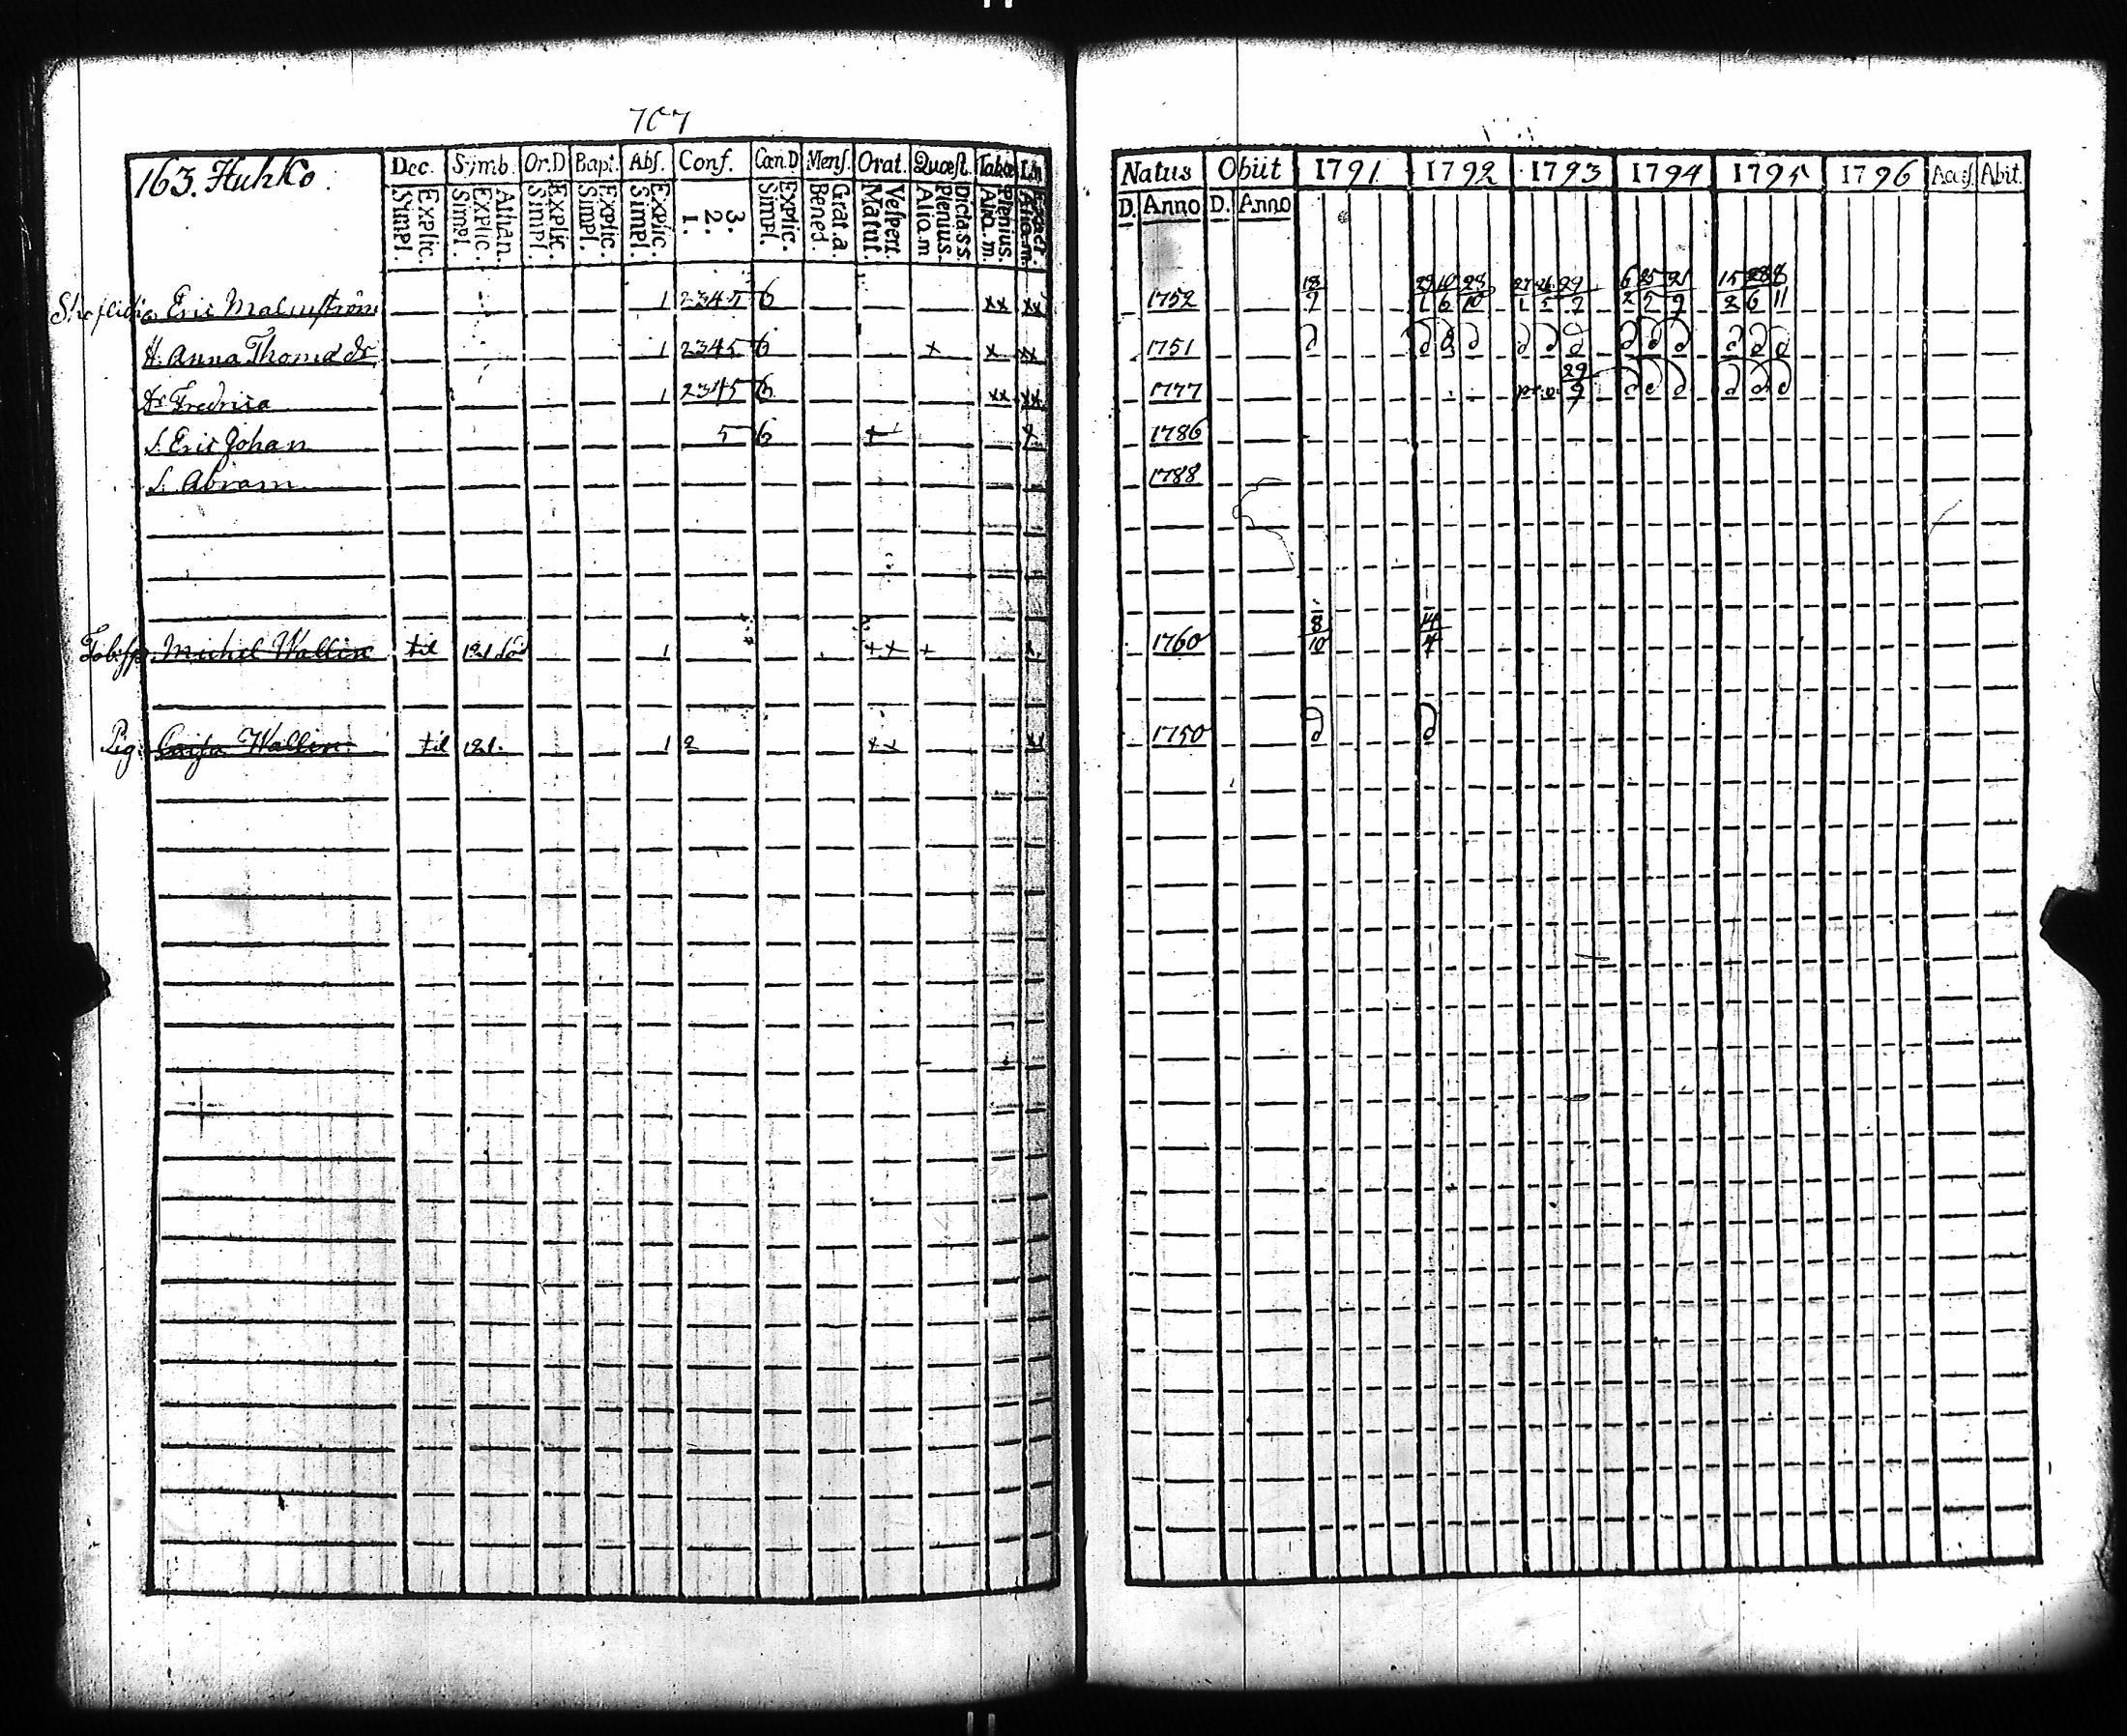 707
163. Huhko. Dec. Symb. Or.D Bapt. Abs. Conf. Cœn.D Mens. Orat. Quæst. Tabœ
Explic. Simpl. Athan. Explic. Simpl. Explic. Simpl. Explic. Simpl. Explic. Simpl. 3. 2. 1. Explic. Simpl. Grat.a. Bened. Vespert. Matut. Dicta.SS Plenius. Alio.m Plenius. Alio.m. Exact. Alio.m.
Eric Malmström 1 2345 6 xx xx
H. Anna Thomædr 1 2345 6 x x xx
Dr Fredrica 1 2345 6 xx xx
S. Eric Johan 5 6 + x
S. Abram
Michel Wallin til 1 ++ +
Pig Caisa Wallin til 121. 1 2 ++
Natus Obiit 1791 1792 1793 1794 1795 1796 Acces. Abit.
D. Anno D. Anno
1752 18/9 29/1 10/6 28/10 27/1 26/5 29/9 6/2 25/5 21/9 15/2 28/6 8/11
1751
1777 29/9
1786
1788
1760 8/10 14/4
1750